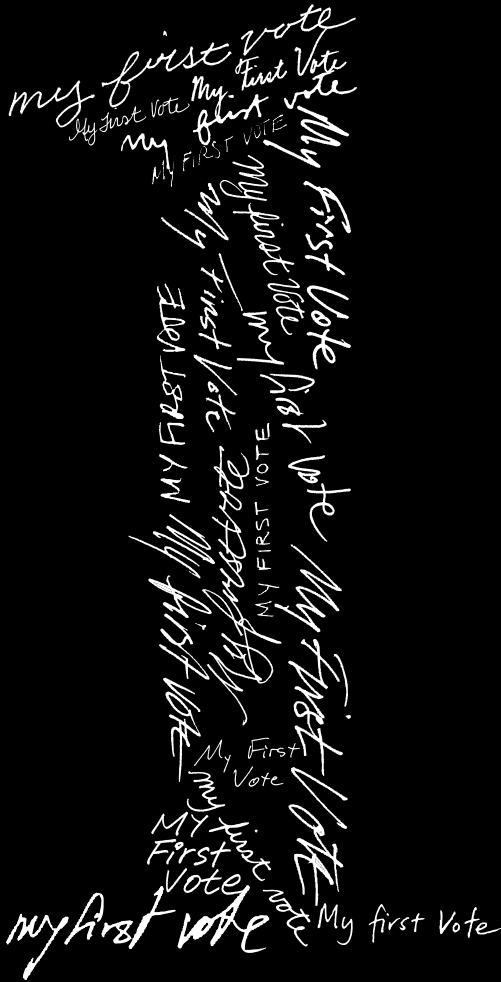 my first vote
My First Vote
My First Vote
my first vote
MY FIRST VOTE
My First Vote
My first Vote
My First Vote
my first vote
MY FIRST VOTE
My first vote
MY FIRST VOTE
My first Vote
My First Vote
My First
Vote
my first vote
MY
First
Vote
my first vote
My first Vote